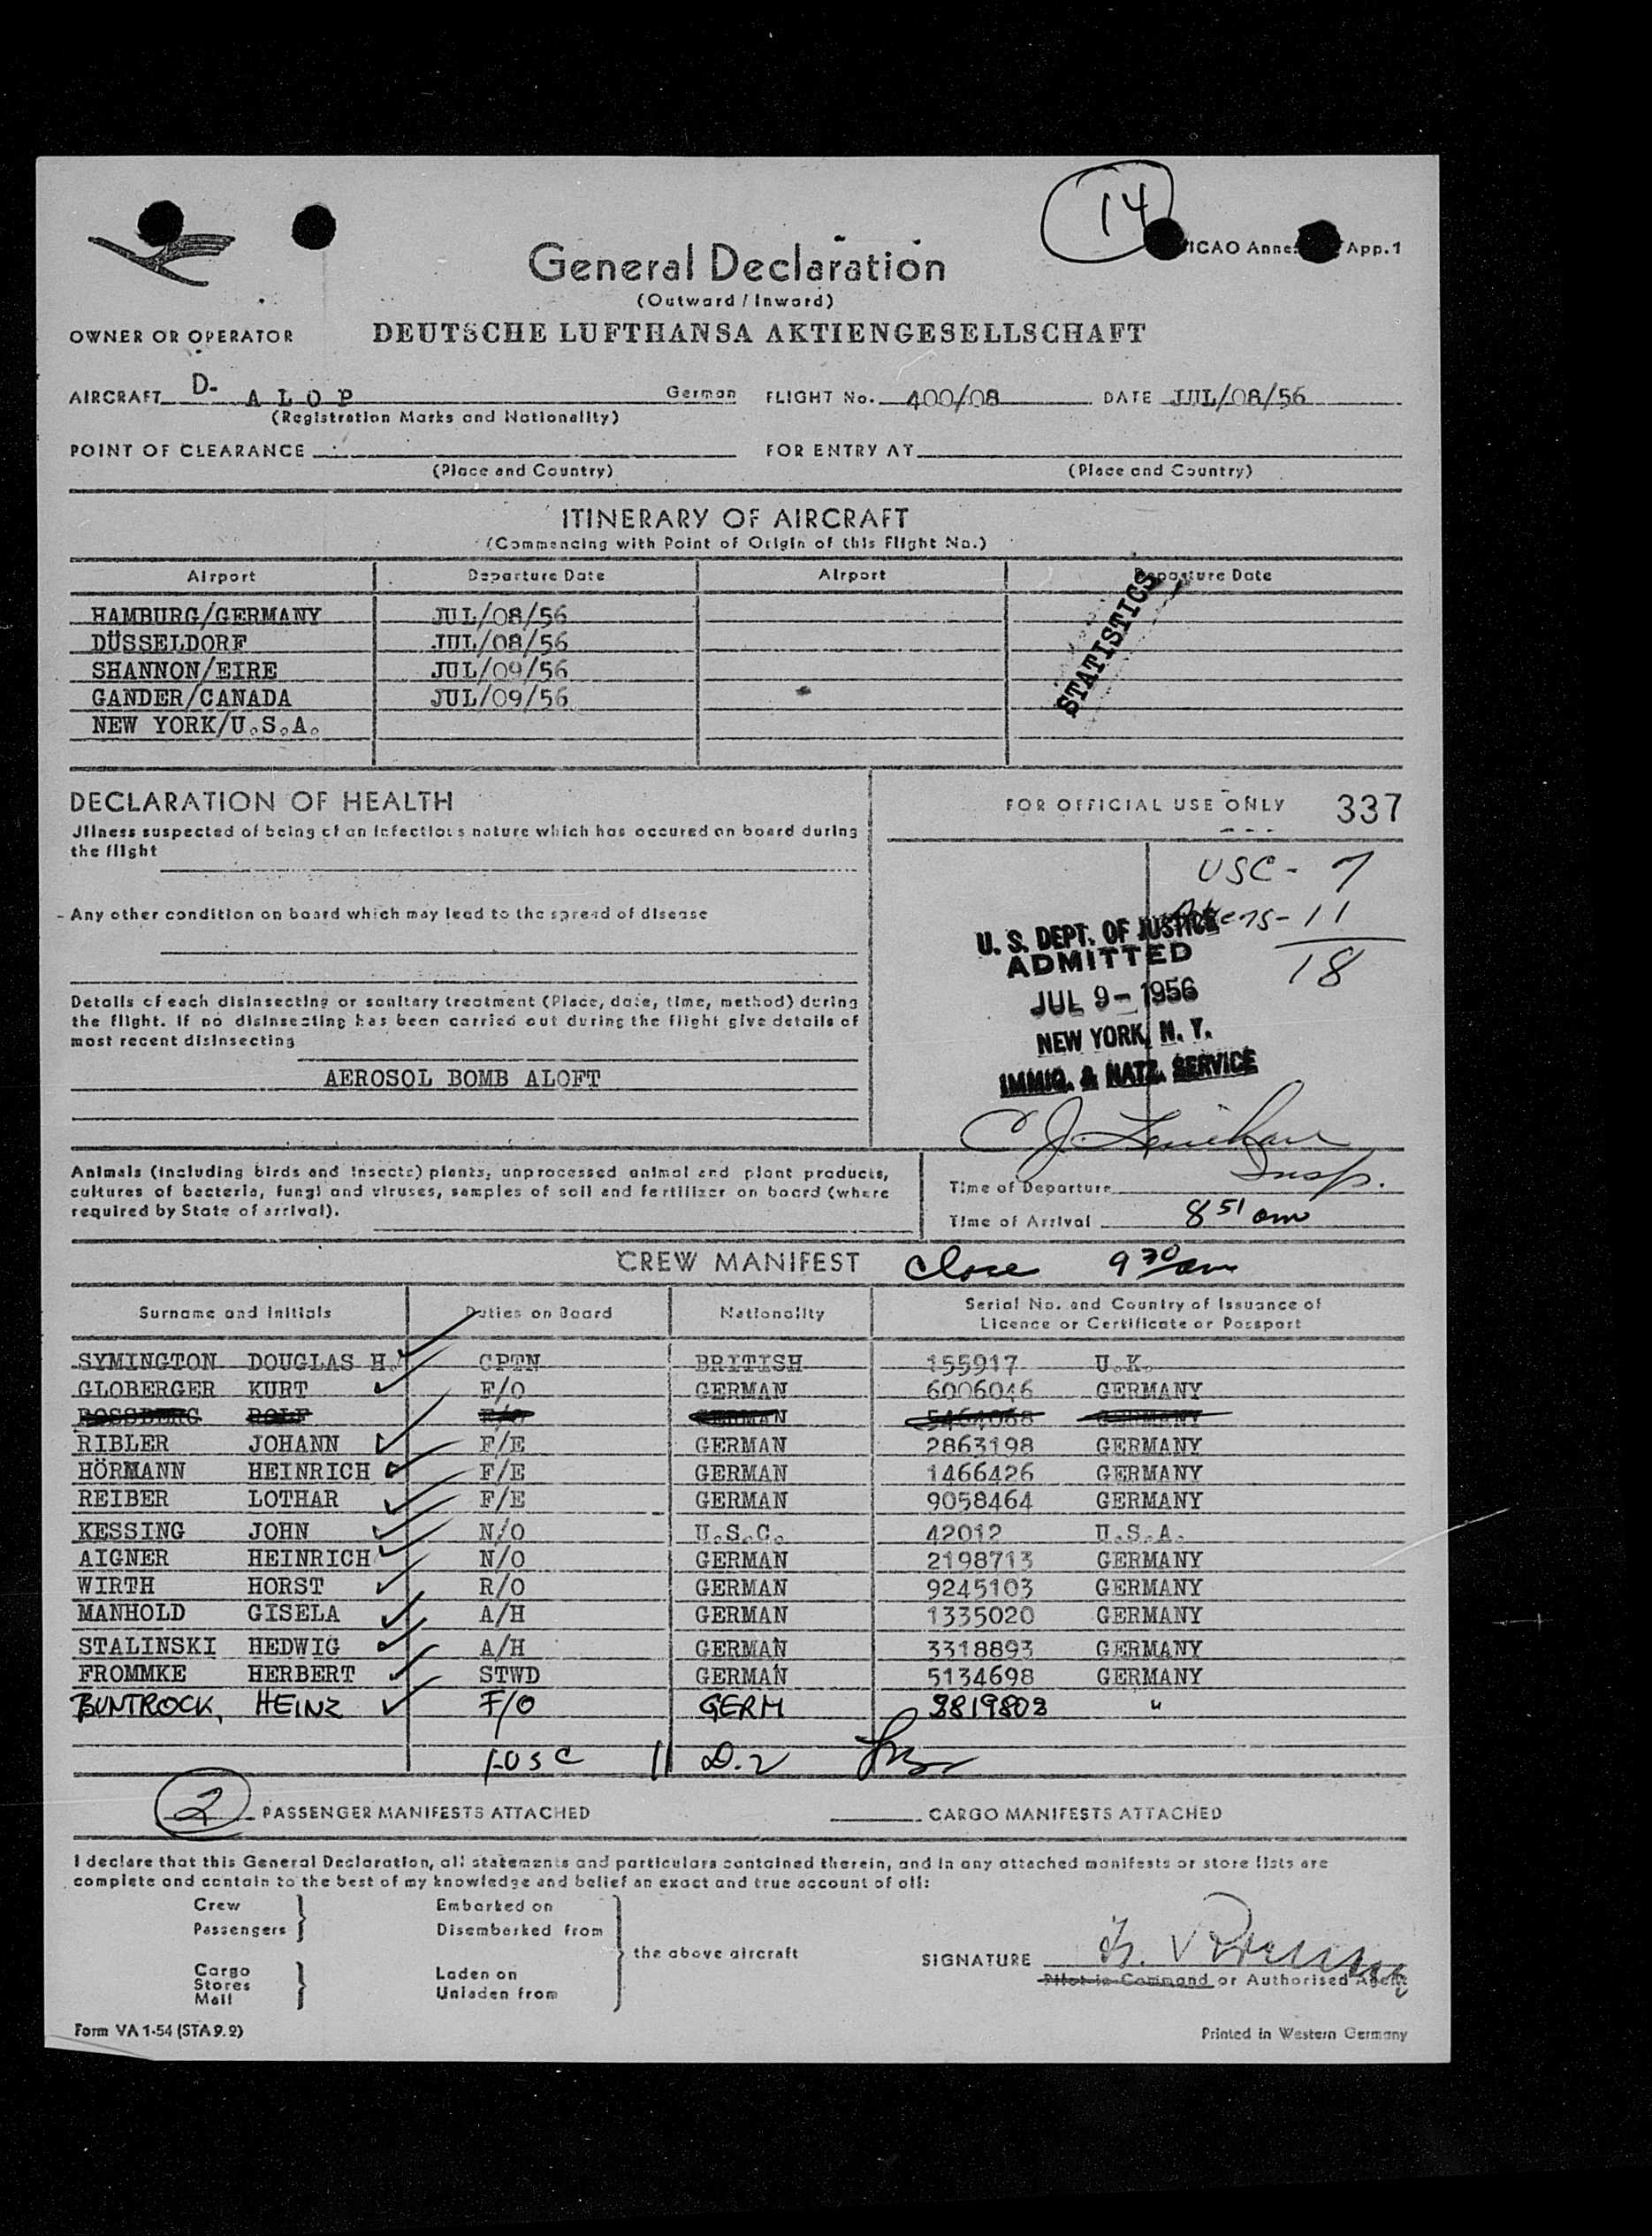 14
ICAO Anne App. 1
General Declaration
(Outward / Inward)
OWNER OR OPERATOR DEUTSCHE LUFTHANSA AKTIENGESELLSCHAFT
AIRCRAFT D- ALOP German FLIGHT No. 400/08 DATE JUL/08/56
(Registration Marks and Nationality)
POINT OF CLEARANCE FOR ENTRY AT
(Place and Country) (Place and Country)
ITINERARY OF AIRCRAFT
(Commencing with Point of Origin of this Flight No.)
Airport Departure Date Airport Departure Date
HAMBURG/GERMANY JUL/08/56
DÜSSELDORF JUL/08/56
SHANNON/EIRE JUL/09/56
GANDER/CANADA JUL/09/56
NEW YORK/U.S.A.
STATISTICS
DECLARATION OF HEALTH
Jllness suspected of being of an infectious nature which has occured on board during
the flight
- Any other condition on board which may lead to the spread of disease
Details of each disinsecting or sanitary treatment (Place, date, time, method) during
the flight. If no disinsecting has been carried out during the flight give details of
most recent disinsecting
AEROSOL BOMB ALOFT
FOR OFFICIAL USE ONLY 337
USC - 7
Aliens - 11
18
U. S. DEPT. OF JUSTICE
ADMITTED
JUL 9 - 1956
NEW YORK, N. Y.
IMMIG. & NATZ. SERVICE
C J. Lenihan
Insp.
Animals (including birds and insects) plants, unprocessed animal and plant products,
cultures of bacteria, fungi and viruses, samples of soil and fertilizer on board (where
required by State of arrival).
Time of Departure
Time of Arrival 8 51 am
CREW MANIFEST Close 9 30 am
Surname and Initials Duties on Board Nationality Serial No. and Country of Issuance of
Licence or Certificate or Passport
SYMINGTON DOUGLAS H. CPTN BRITISH 155917 U.K.
GLOBERGER KURT F/O GERMAN 6006046 GERMANY
ROSSBERG ROLF F/O GERMAN 5464068 GERMANY
RIBLER JOHANN F/E GERMAN 2863198 GERMANY
HÖRMANN HEINRICH F/E GERMAN 1466426 GERMANY
REIBER LOTHAR F/E GERMAN 9058464 GERMANY
KESSING JOHN N/O U.S.C. 42012 U.S.A.
AIGNER HEINRICH N/O GERMAN 2198713 GERMANY
WIRTH HORST R/O GERMAN 9245103 GERMANY
MANHOLD GISELA A/H GERMAN 1335020 GERMANY
STALINSKI HEDWIG A/H GERMAN 3318893 GERMANY
FROMMKE HERBERT STWD GERMAN 5134698 GERMANY
BUNTROCK, HEINZ F/O GERM 3819803 "
1-USC 11 D.2
2 PASSENGER MANIFESTS ATTACHED CARGO MANIFESTS ATTACHED
I declare that this General Declaration, all statements and particulars contained therein, and in any attached manifests or store lists are
complete and contain to the best of my knowledge and belief an exact and true account of all:
Crew Embarked on
Passengers Disembarked from
the above aircraft
Cargo Laden on
Stores
Mail Unladen from
SIGNATURE
Pilot in Command or Authorised Agent
Form VA 1-54 (STA 9.2) Printed in Western Germany